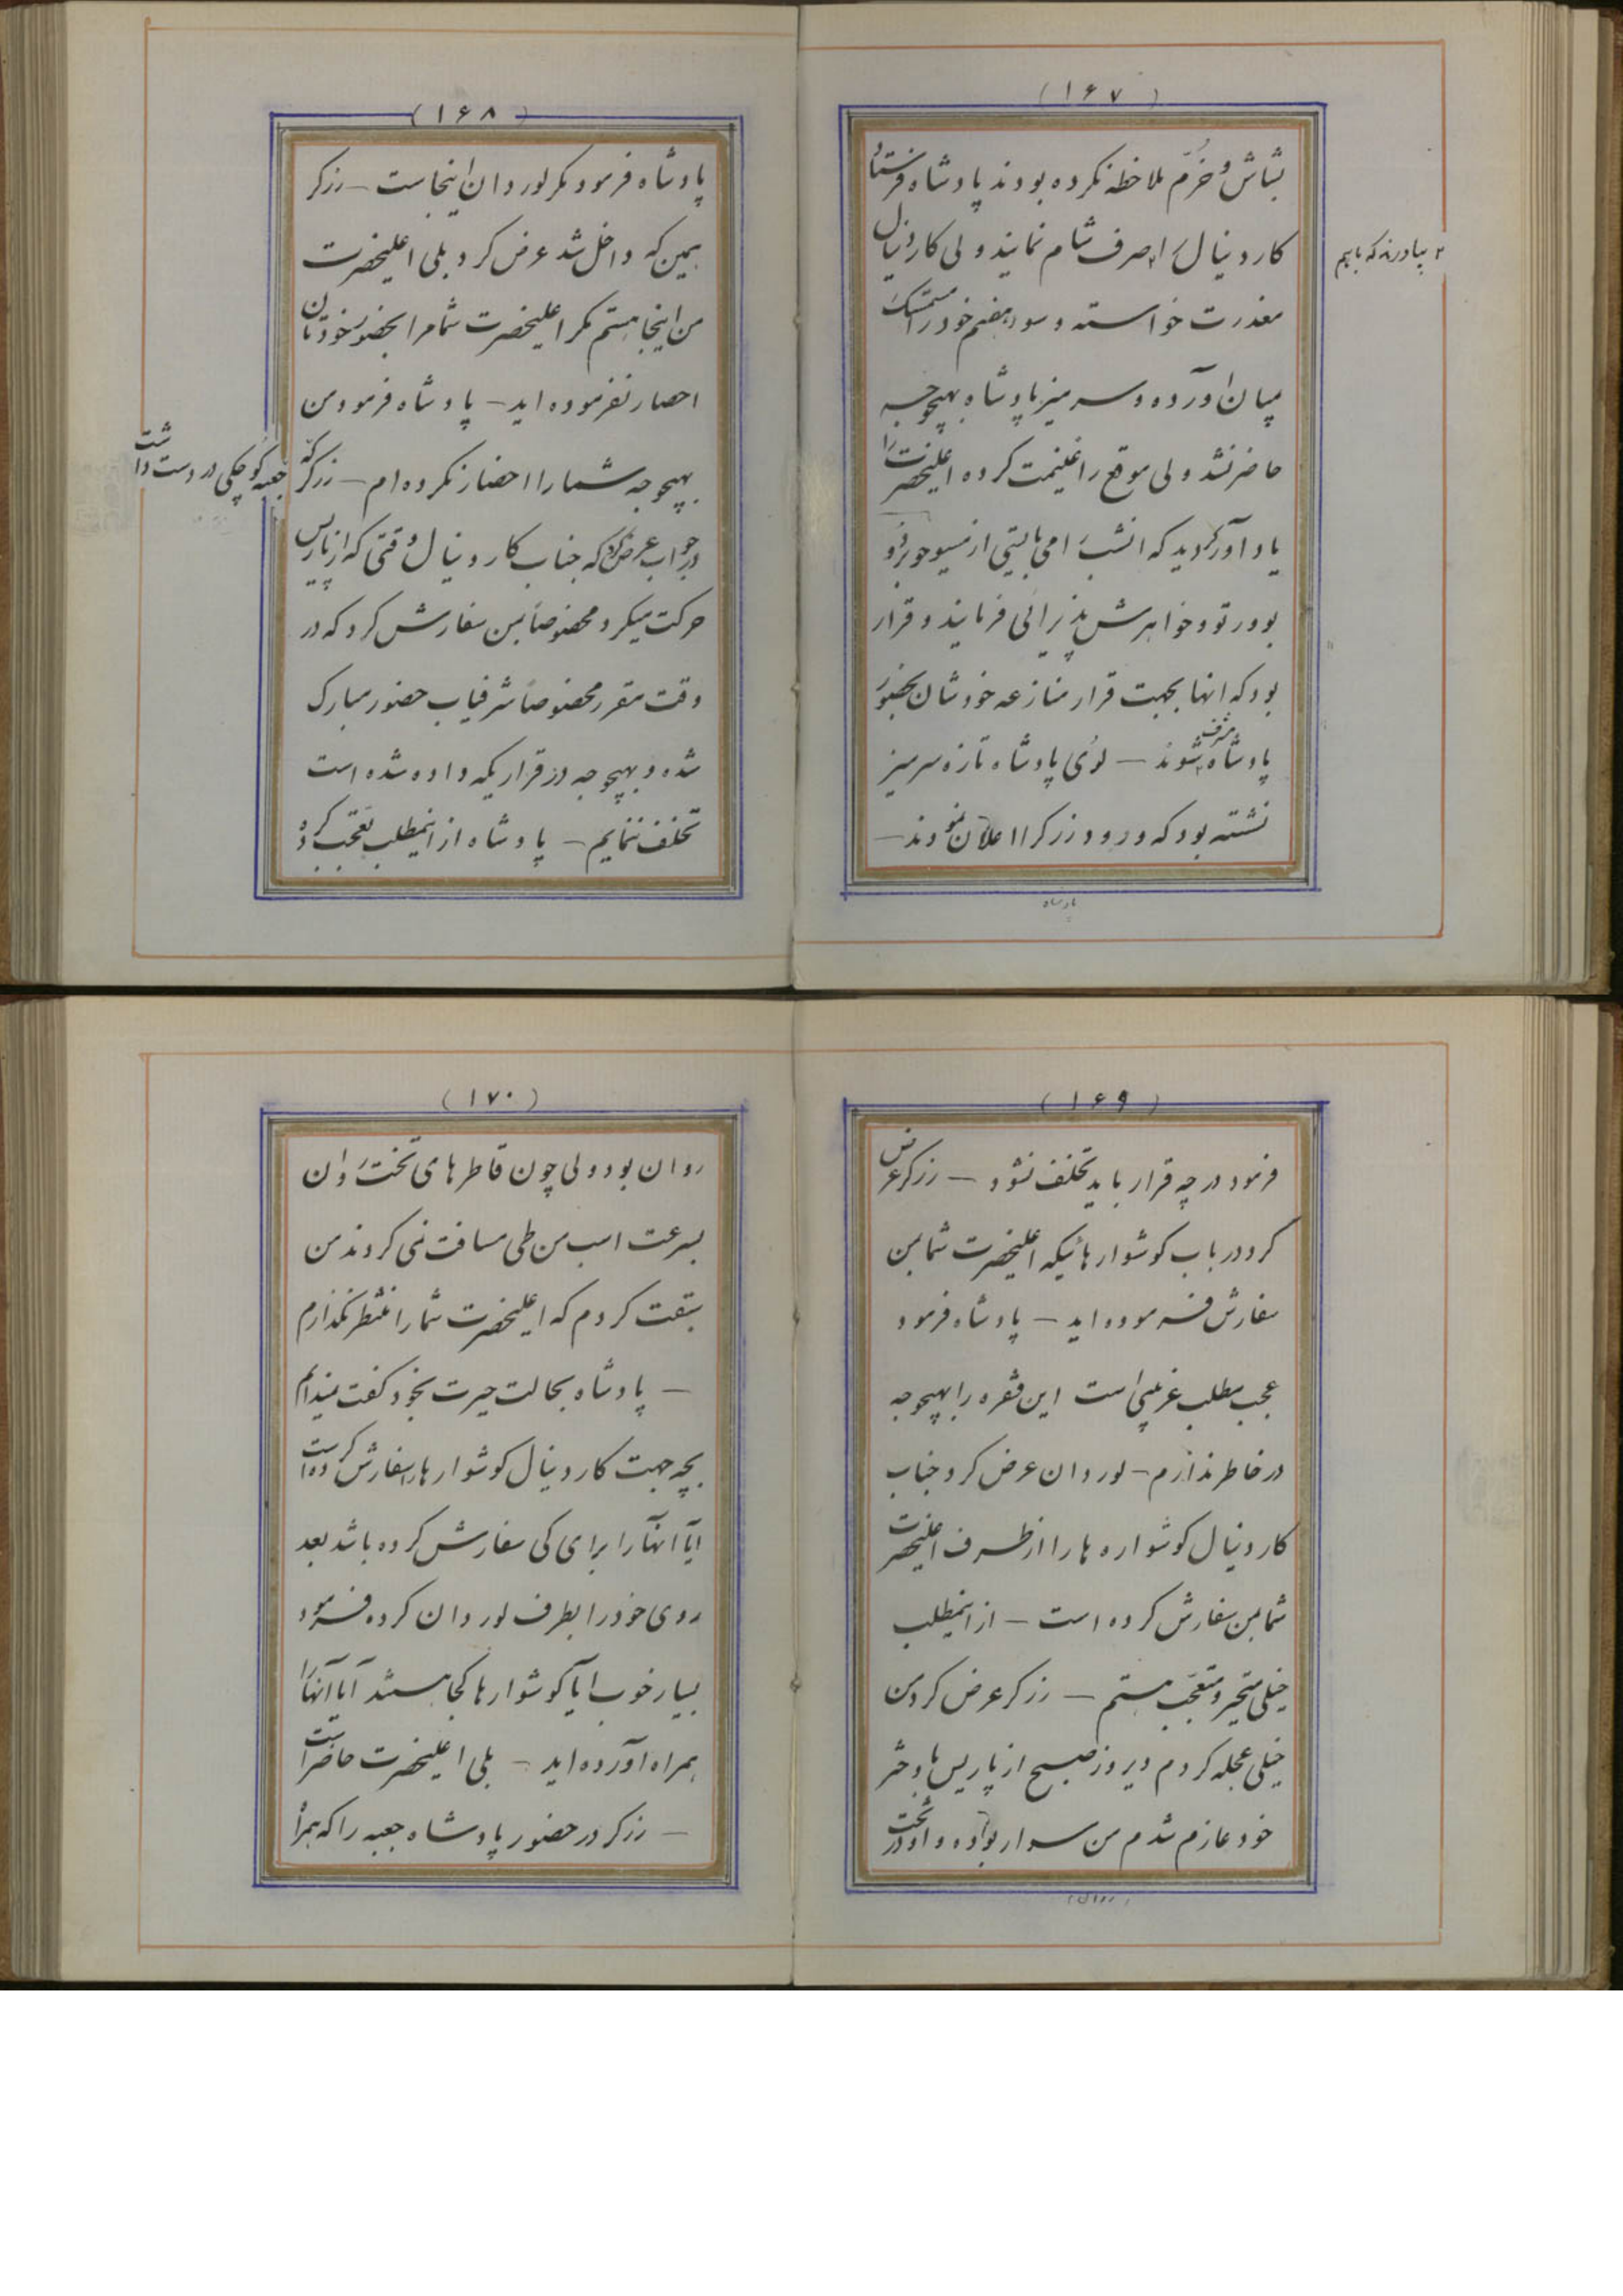 (۱۶۷)
بشاش و خرّم ملاحظه نکرده بودند پادشاه فرستاد
کاردینال را صرف شام نمایند ولی کاردینال
۲ بیاورند که باهم
معذرت خواسته و سوء هضم خود را متمسک
میان آورده و سر میز پادشاه بهیچوجه
حاضر نشد ولی موقع را غنیمت کرده اعلیحضرت را
یاد آور گردید که امشب را می بایستی از مسیو
بودرتو و خواهرش پذیرائی فرمایند و قرار
بود که انها بجهت قرار منازعه خودشان بحضور
پادشاه مشرف شوند – لوئی پادشاه تازه سر میز
نشسته بود که ورود زرکر را اعلان نمودند –
پادشاه
(۱۶۸)
پادشاه فرمود مکر لوردان اینجاست – زرکر
همین که داخل شد عرض کرد بلی اعلیحضرت
من اینجا هستم مکر اعلیحضرت شما مرا بحضور خودتان
احضار نفرموده اید – پادشاه فرمود من
بهیچوجه شما را احضار نکرده ام – زرکر که
جعبه کوچکی در دست داشت
در جواب عرض کرد که جناب کاردینال وقتی که از پاریس
حرکت میکرد مخصوصاً بمن سفارش کرد که در
وقت مقرر مخصوصاً شرفیاب حضور مبارک
شده و بهیچوجه در قراریکه داده شده است
تخلف ننمایم – پادشاه از اینمطلب تعجب کرده
(۱۶۹)
فرمود در چه قرار باید تخلف نشود – زرکر عرض
کرد در باب کوشوارهائیکه اعلیحضرت شما بمن
سفارش فرموده اید – پادشاه فرمود
عجب مطلب غریبی است این فقره را بهیچوجه
در خاطر ندارم – لوردان عرض کرد جناب
کاردینال کوشواره ها را از طرف اعلیحضرت
شما بمن سفارش کرده است – از اینمطلب
خیلی متحیر و متعجب هستم – زرکر عرض کرد من
خیلی عجله کردم دیروز صبح از پاریس با دختر
خود عازم شدم من سوار بوده و او در تخت
(روان)
(۱۷۰)
روان بود ولی چون قاطرهای تخت روان
بسرعت اسب من طی مسافت نمی کردند من
سبقت کردم که اعلیحضرت شما را منتظر نکذارم
– پادشاه بحالت حیرت بخود گفت نمیدانم
بچه جهت کاردینال کوشوارها را سفارش کرده است
آیا انها را برای کی سفارش کرده باشد بعد
روی خود را بطرف لوردان کرده فرمود
بسیار خوب آیا کوشوارها کجا هستند آیا آنها را
همراه آورده اید – بلی اعلیحضرت حاضر است
– زرکر در حضور پادشاه جعبه را که همراه